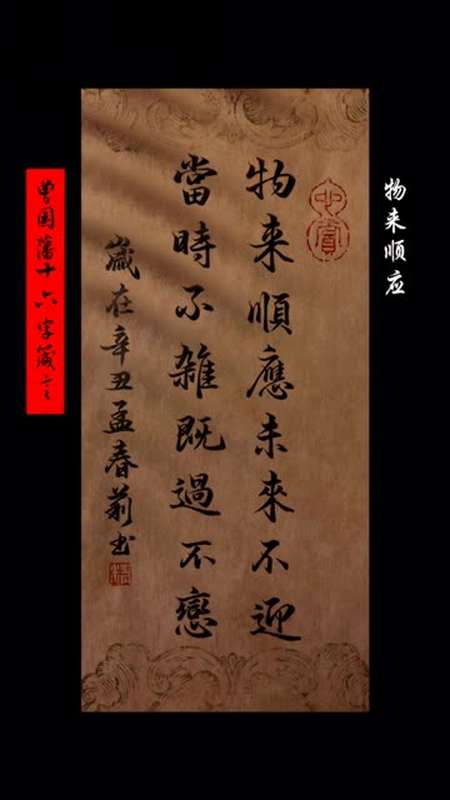 物来顺应
物来順應未來不迎
當時不雜既過不戀
歲在辛丑孟春莉书
曾国藩十六字箴言